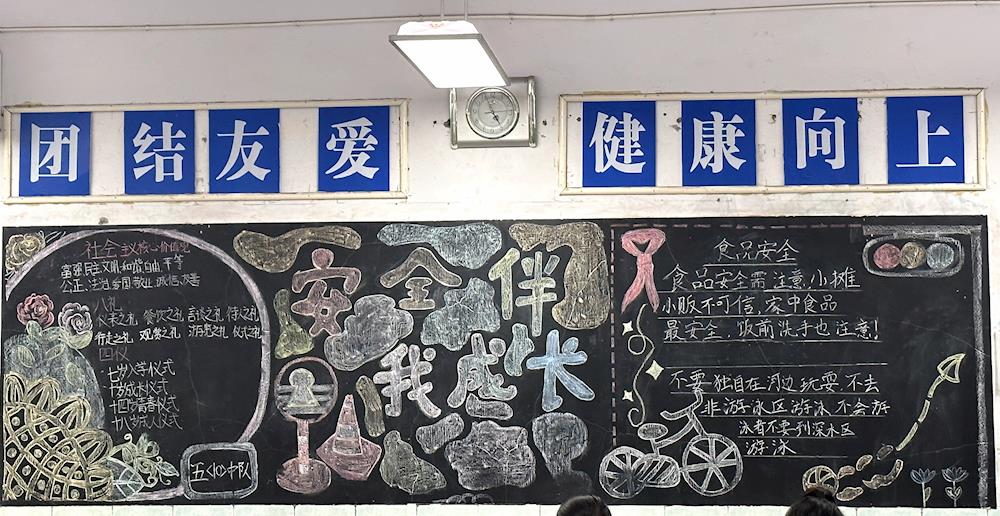 团结友爱
健康向上
社会主义核心价值观
富强 民主 文明 和谐 自由 平等
公正 法治 爱国 敬业 诚信 友善
八礼
仪表之礼 餐饮之礼 言谈之礼 待人之礼
行走之礼 观赏之礼 游览之礼 仪式之礼
四仪
七岁入学仪式
十岁成长仪式
十四岁青春仪式
十八岁成人仪式
中队
安全伴
我成长
食品安全
食品安全需注意,小摊
小贩不可信,家中食品
最安全,饭前洗手也注意!
不要独自在河边玩耍,不去
非游泳区游泳,不会游
泳者不要到深水区
游泳